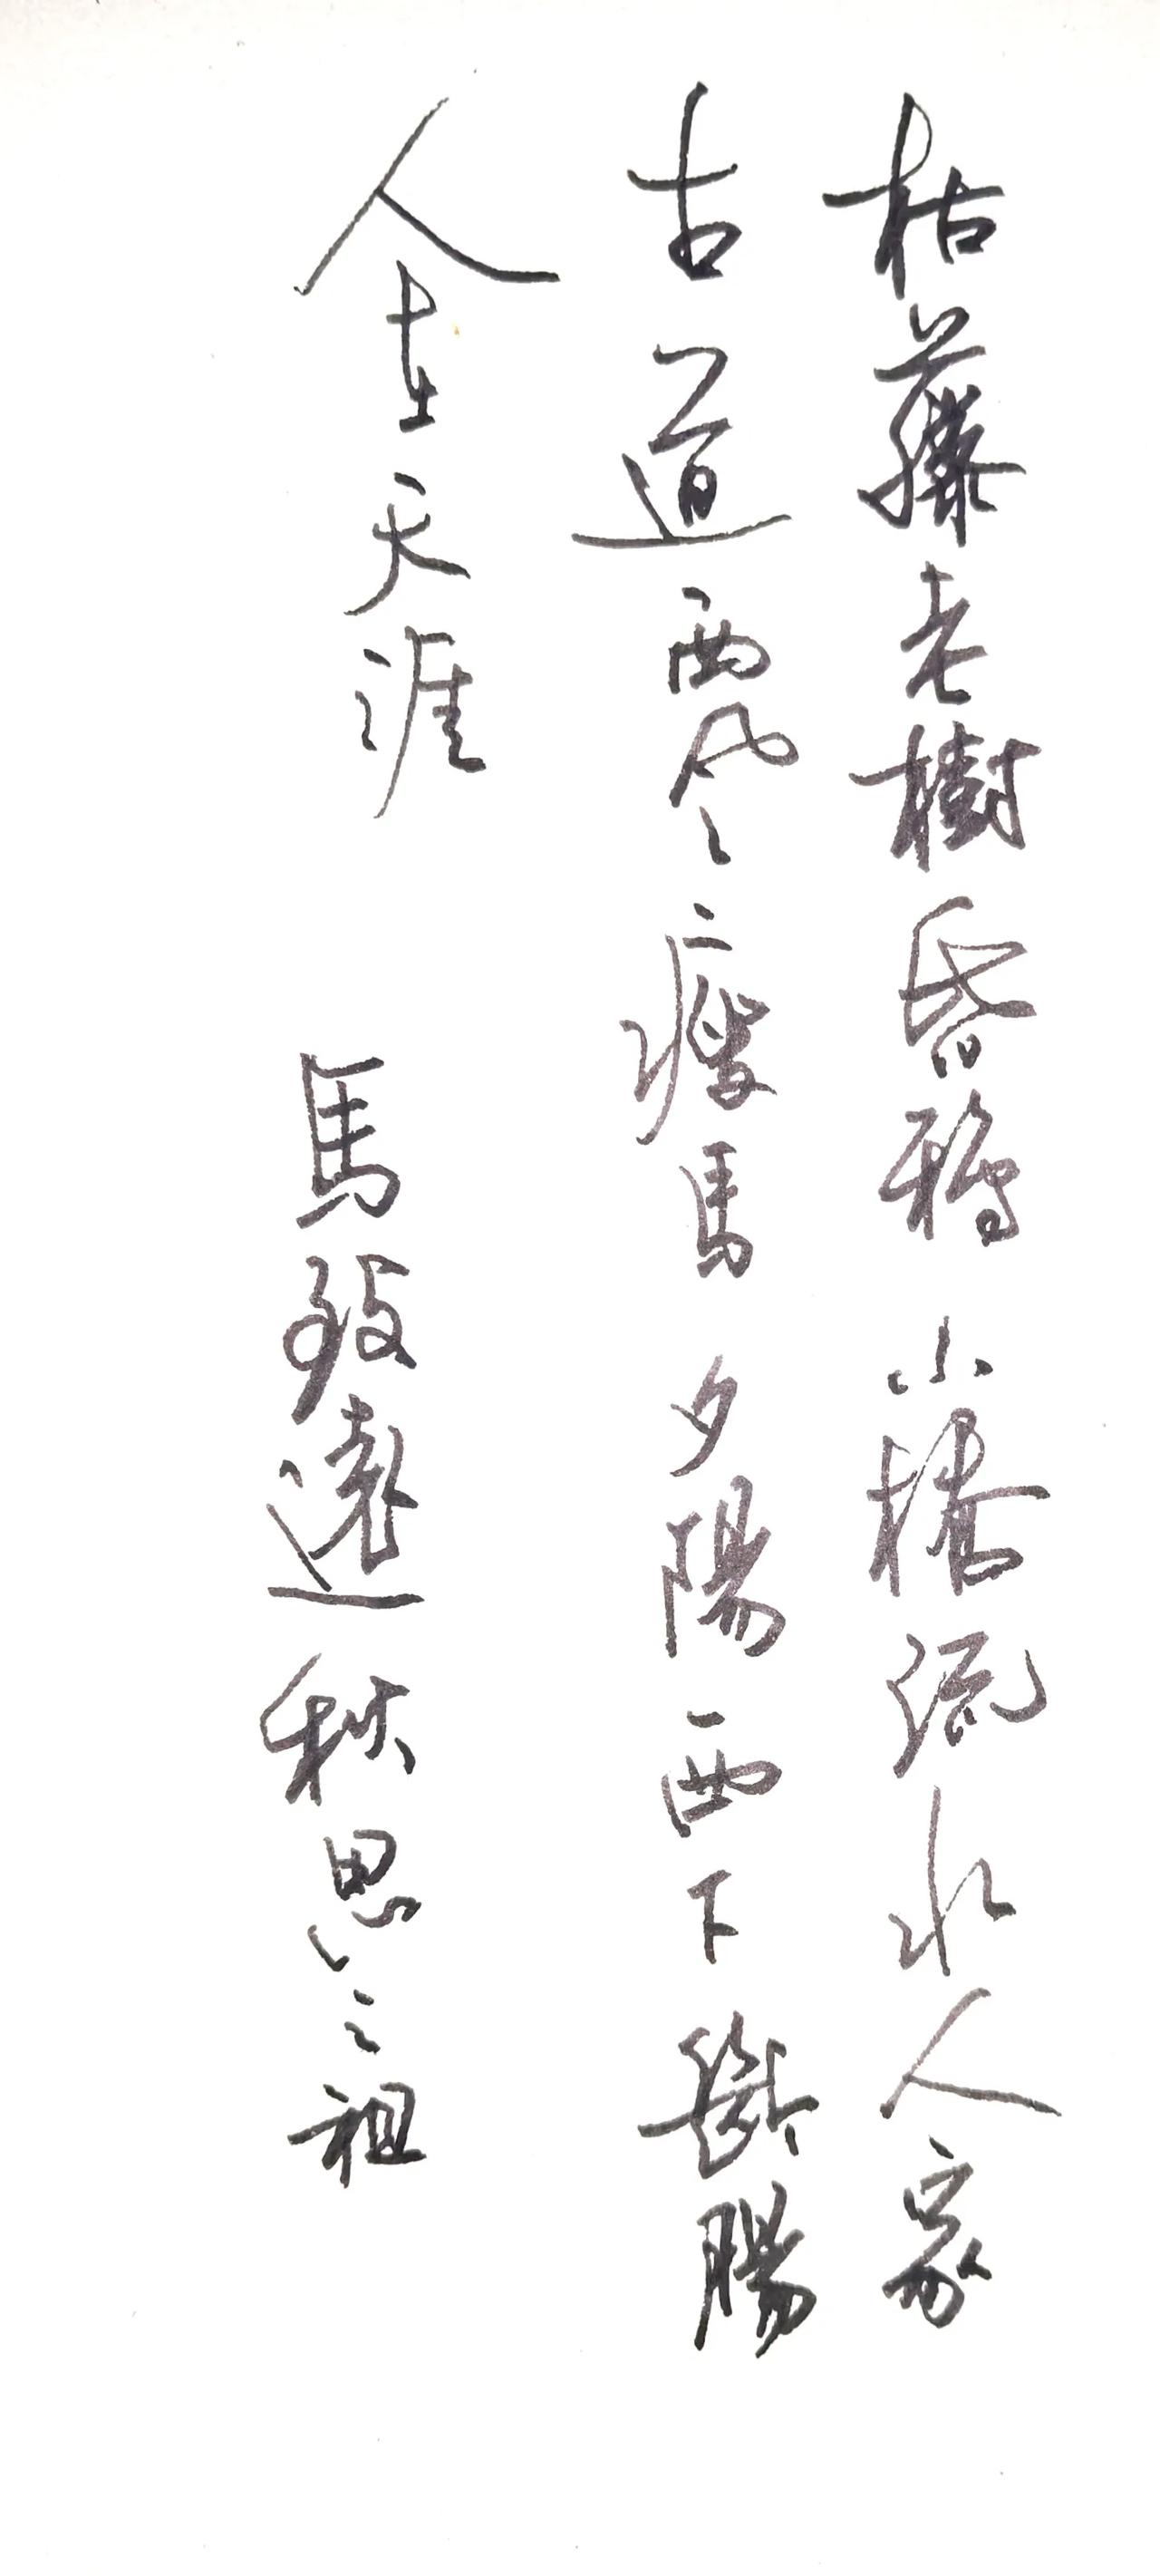 枯藤老樹昏鴉小橋流水人家
古道西風瘦馬夕陽西下斷腸
人在天涯 馬致遠秋思之祖